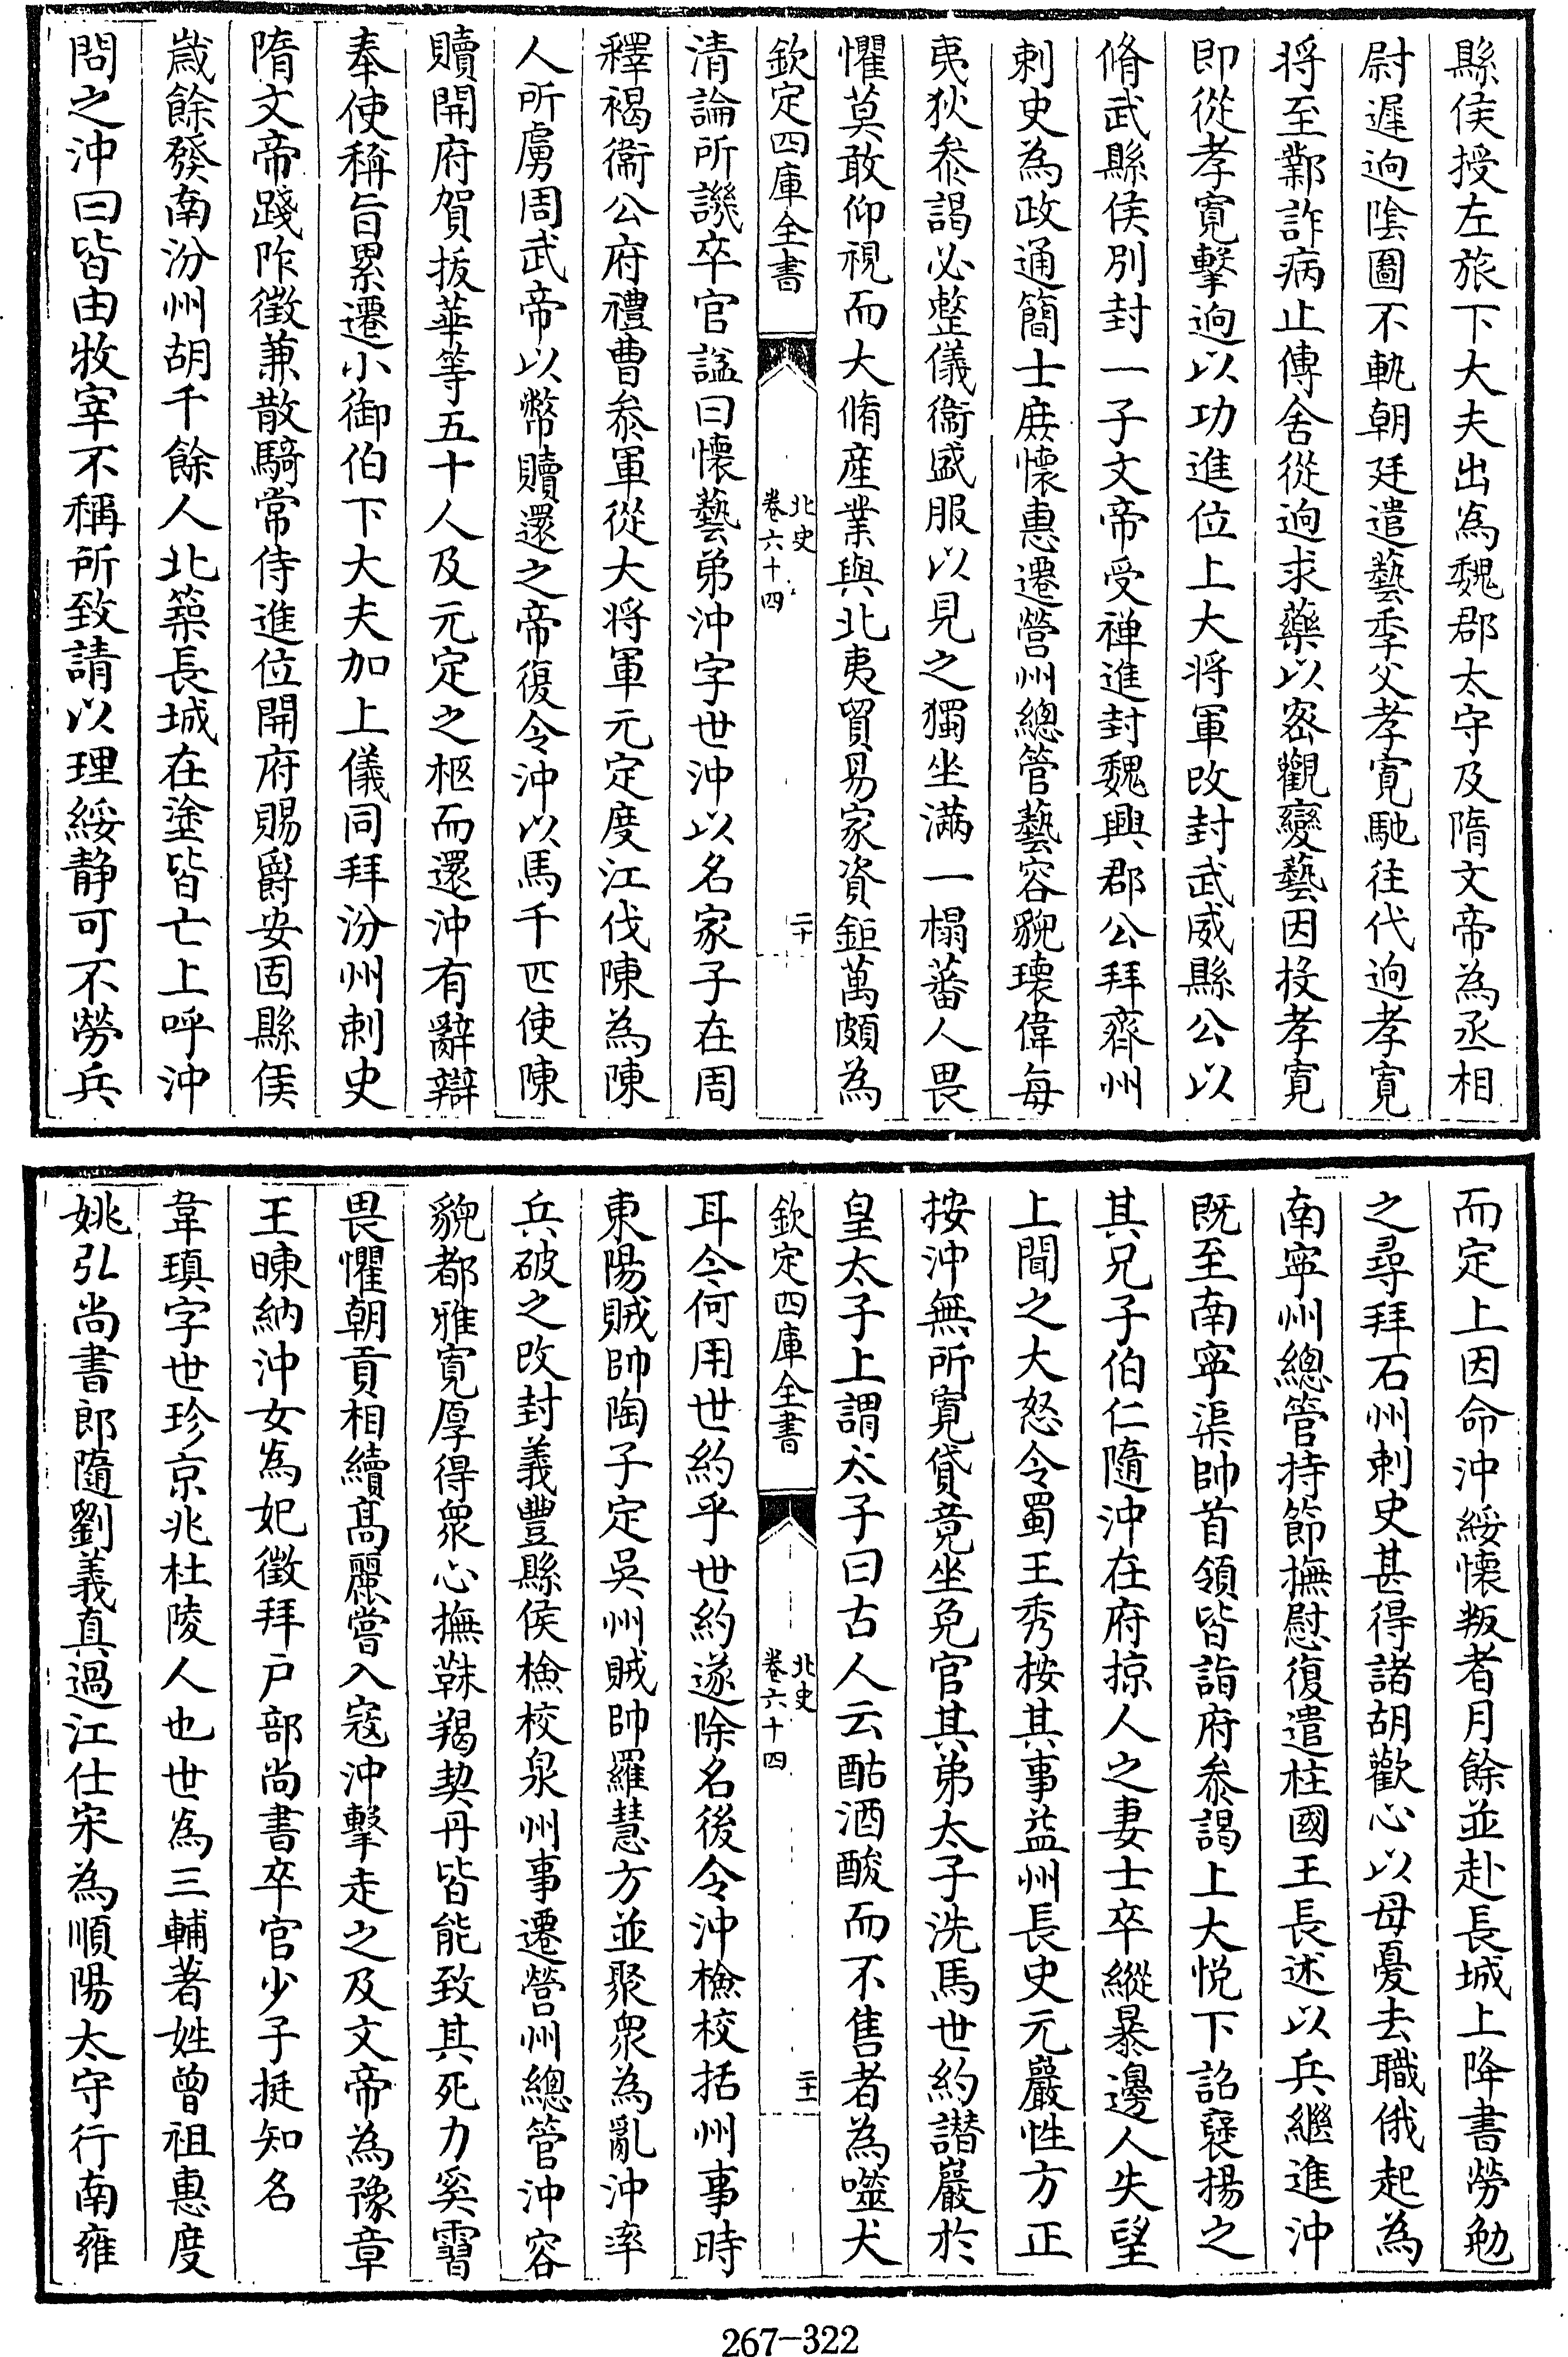 縣侯授左旅下大夫出為魏郡太守及隋文帝為丞相
尉遲迥陰圖不軌朝廷遣藝季父孝寛馳往代迥孝寛
将至鄴詐病止傳舍從迥求藥以宻觀變藝因投孝寛
即從孝寛擊迥以功進位上大将軍改封武威縣公以
脩武縣侯別封一子文帝受禅進封魏興郡公拜齊州
刺史為政通簡士庶懷惠遷營州總管藝容貌瓌偉每
夷狄叅謁必整儀衞盛服以見之獨坐滿一榻蕃人畏
懼莫敢仰視而大脩産業與北夷貿易家資鉅萬頗為
欽定四庫全書
北史
卷六十四
二十
清論所譏卒官諡曰懷藝弟沖字世沖以名家子在周
釋褐衞公府禮曹叅軍從大将軍元定度江伐陳為陳
人所虜周武帝以幣贖還之帝復令沖以馬千匹使陳
贖開府賀拔華等五十人及元定之柩而還沖有辭辯
奉使稱旨累遷小御伯下大夫加上儀同拜汾州刺史
隋文帝踐阼徵兼散騎常侍進位開府賜爵安固縣侯
歲餘發南汾州胡千餘人北築長城在塗皆亡上呼沖
問之沖曰皆由牧宰不稱所致請以理綏静可不勞兵
而定上因命沖綏懷叛者月餘並赴長城上降書勞勉
之尋拜石州刺史甚得諸胡歡心以母憂去職俄起為
南寧州總管持節撫慰復遣柱國王長述以兵繼進沖
既至南寧渠帥首領皆詣府叅謁上大悦下詔襃揚之
其兄子伯仁隨沖在府掠人之妻士卒縱暴邊人失望
上聞之大怒令蜀王秀按其事益州長史元巖性方正
按沖無所寛貸竟坐免官其弟太子洗馬世約譛巖於
皇太子上謂太子曰古人云酤酒酸而不售者為噬犬
欽定四庫全書
北史
卷六十四
二十一
耳今何用世約乎世約遂除名後令沖檢校括州事時
東陽賊帥陶子定吳州賊帥羅慧方並聚衆為亂沖率
兵破之改封義豐縣侯檢校泉州事遷營州總管沖容
貌都雅寛厚得衆心撫靺羯契丹皆能致其死力奚霫
畏懼朝貢相續髙麗嘗入寇沖擊走之及文帝為豫章
王暕納沖女為妃徵拜戸部尚書卒官少子挺知名
韋瑱字世珍京兆杜陵人也世為三輔著姓曾祖惠度
姚弘尚書郎隨劉義真過江仕宋為順陽太守行南雍
267-322